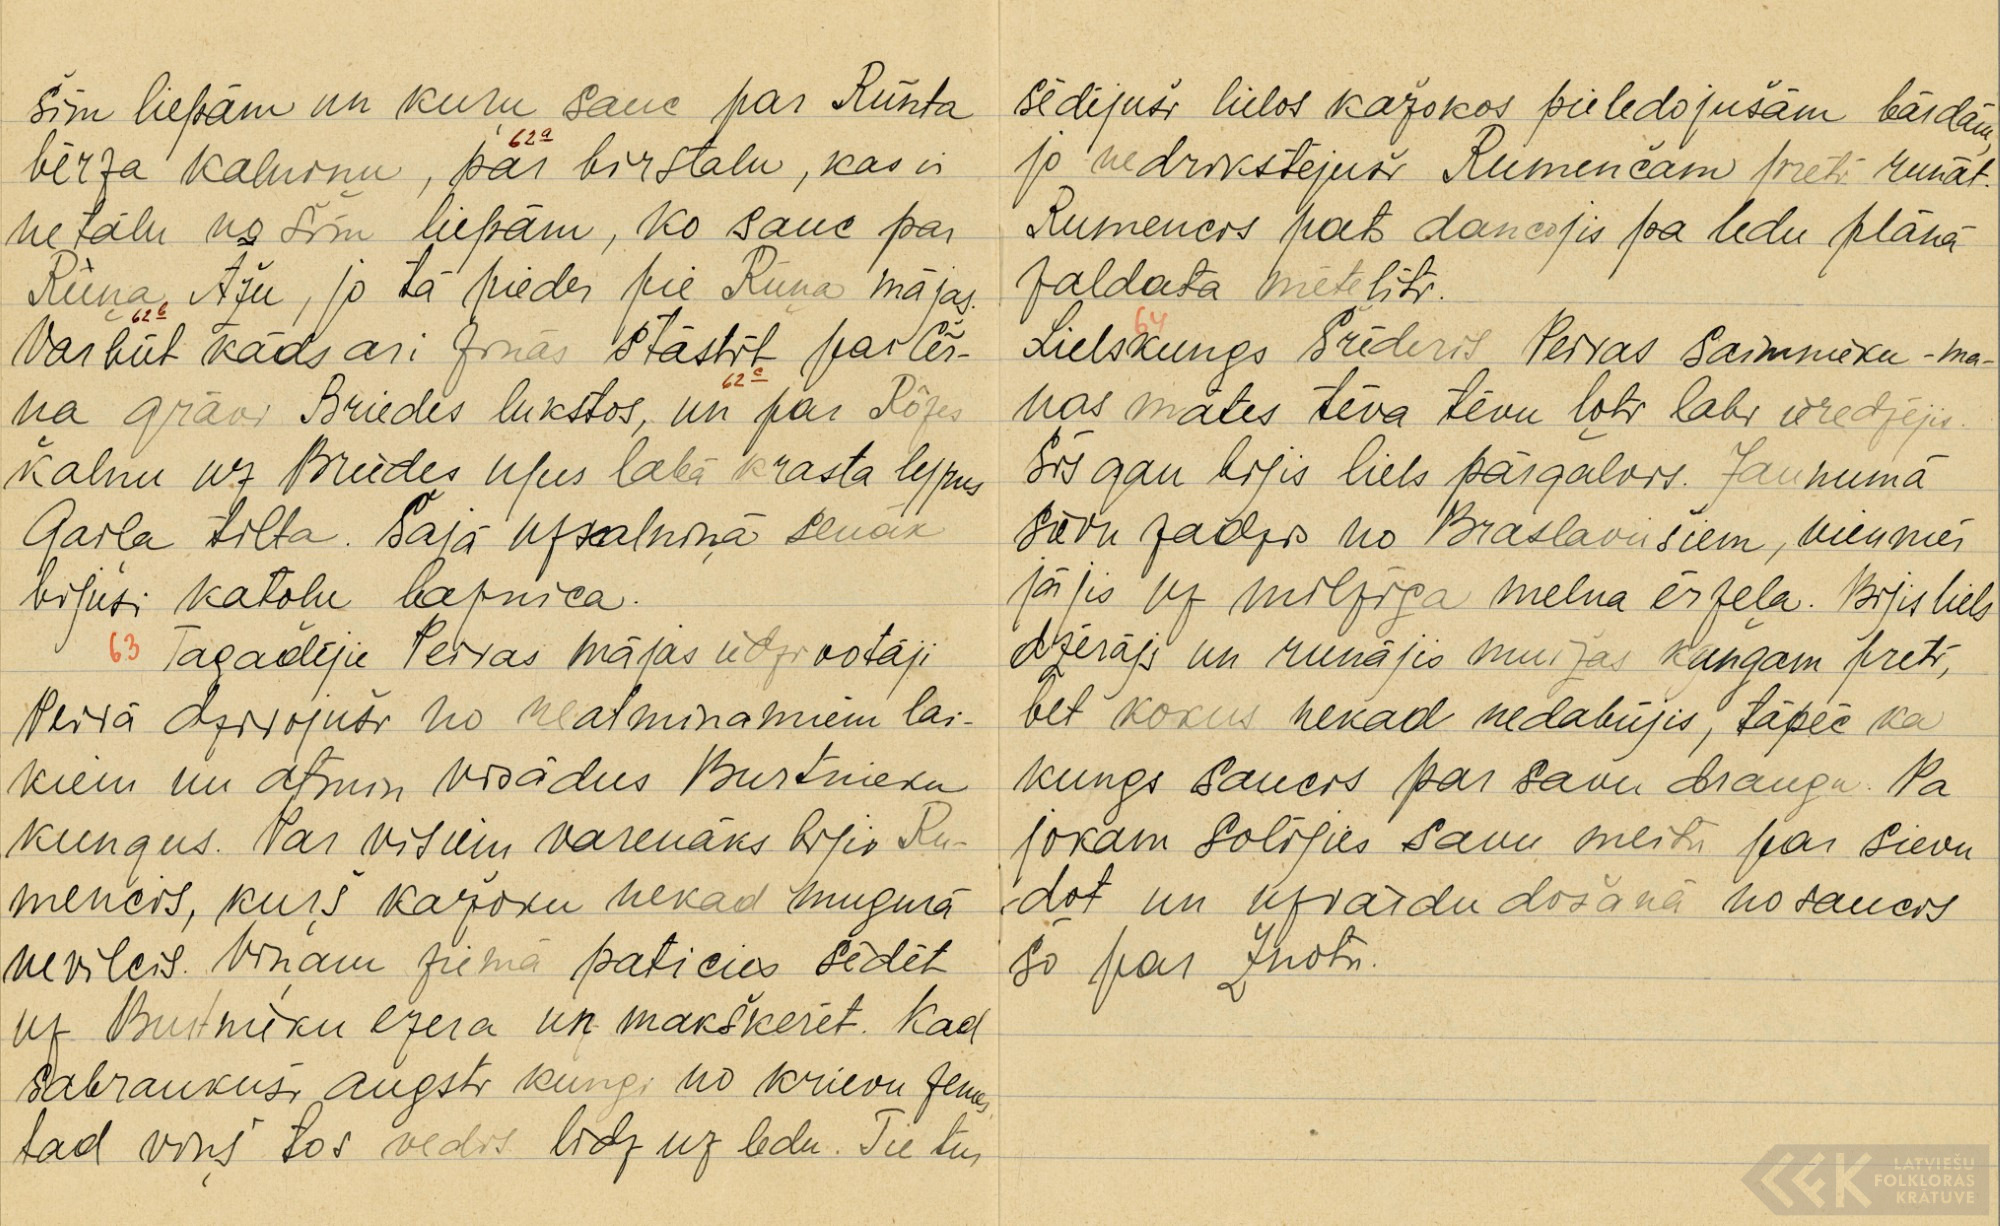 šīm liepām un kuŗu sauc par Rūnta
bērza kalniņu, 62a par birstalu, kas ir
netālu no šīm liepām, ko sauc par
Rūņa Āžu, jo tā pieder pie Rūņa mājas.
62b Varbūt kāds arī zinās stāstīt par Čer-
na grāvi Briedes lukstos, 62c un par Rōzes
kalnu uz Briedes upes labā krasta lejpus
Gaiļa tilta. Šajā uzkalniņā senāk
bijusi katoļu baznīca.
63 Tagadējie Peivas mājas iedzīvotāji
Peivā dzīvojuši no neatminamiem lai-
kiem un atmin visādus Burtnieku
kungus. Par visiem varenāks bijis Ru-
mencis, kuŗš kažoku nekad mugurā
nevilcis. Viņam ziemā paticies sēdēt
uz Burtnieku ezera un makšķerēt. Kad
sabraukuši augsti kungi no krievu zemes,
tad viņš tos vedis līdz uz ledu. Tie tur
sēdējuši lielos kažokos pieledojušām bārdām,
jo nedrīkstējuši Rumenčam pretī runāt.
Rumencis pats dancojis pa ledu plānā
zaldāta mētelītī.
64 Lielskungs Šrēderis Peivas saimnieku - ma-
nas mātes tēva tēvu ļoti labi ieredzējis.
Šis gan bijis liels pārgalvis. Jaunumā
sievu zadzis no Braslaviešiem, vienmēr
jājis uz milzīga melna ērzeļa. Bijis liels
dzērājs un runājis muižas kungam pretī,
bet kokus nekad nedabūjis, tāpēc ka
kungs saucis par savu draugu. Pa
jokam solījies savu meitu par sievu
dot un uzvārdu došanā nosaucis
šo par Znotu.
LATVIEŠU
FOLKLORAS
KRĀTUVE